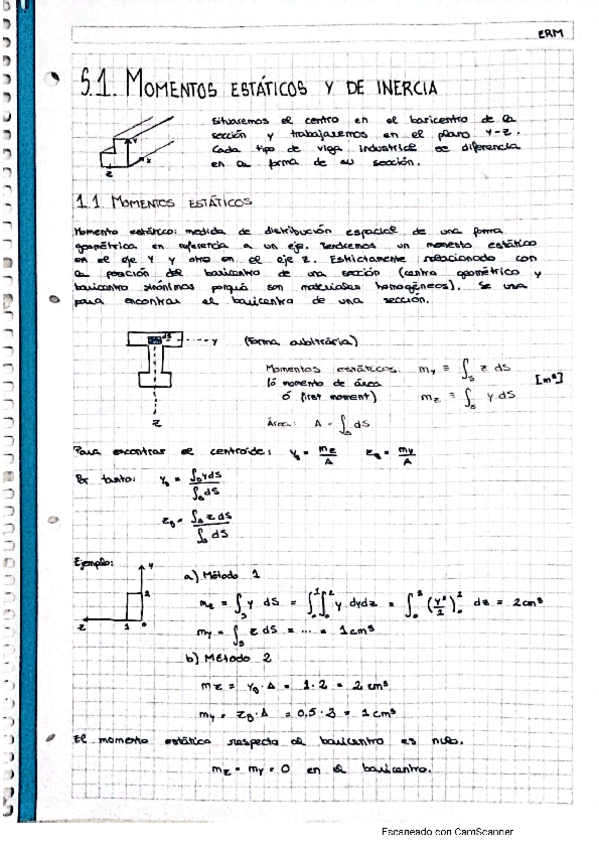 ERM
5.1. MOMENTOS ESTÁTICOS Y DE INERCIA
Situaremos el centro en el baricentro de la
sección y trabajaremos en el plano Y-Z.
Cada tipo de viga industrial se diferencia
en la forma de su sección.
Y
X
Z
1.1 MOMENTOS ESTÁTICOS
Momento estático: medida de distribución espacial de una forma
geométrica en referencia a un eje. Tendremos un momento estático
en el eje Y y otro en el eje Z. Estrictamente relacionado con
la posición del baricentro de una sección (centro geométrico y
baricentro sinónimos porqué son materiales homogéneos). Se usa
para encontrar el baricentro de una sección.
dS
Y (Forma arbitrária)
Z
Momentos estáticos: my ≡ ∫s z dS
(ó momento de área
ó first moment) mz ≡ ∫s y dS [m³]
Área: A = ∫s dS
Para encontrar el centroide: yB = mz/A zB = my/A
Por tanto: yB = ∫s y dS / ∫s dS
zB = ∫s z dS / ∫s dS
Ejemplo:
Y
2
Z 1 0
a) Método 1
mz = ∫s y dS = ∫₀¹∫₀² y dydz = ∫₀¹ (y²/2)₀² dz = 2cm³
my = ∫s z dS = ... = 1cm³
b) Método 2
mz = yB · A = 1·2 = 2 cm³
my = zB · A = 0,5 · 2 = 1 cm³
El momento estático respecto al baricentro es nulo.
mz = my = 0 en el baricentro.
Escaneado con CamScanner